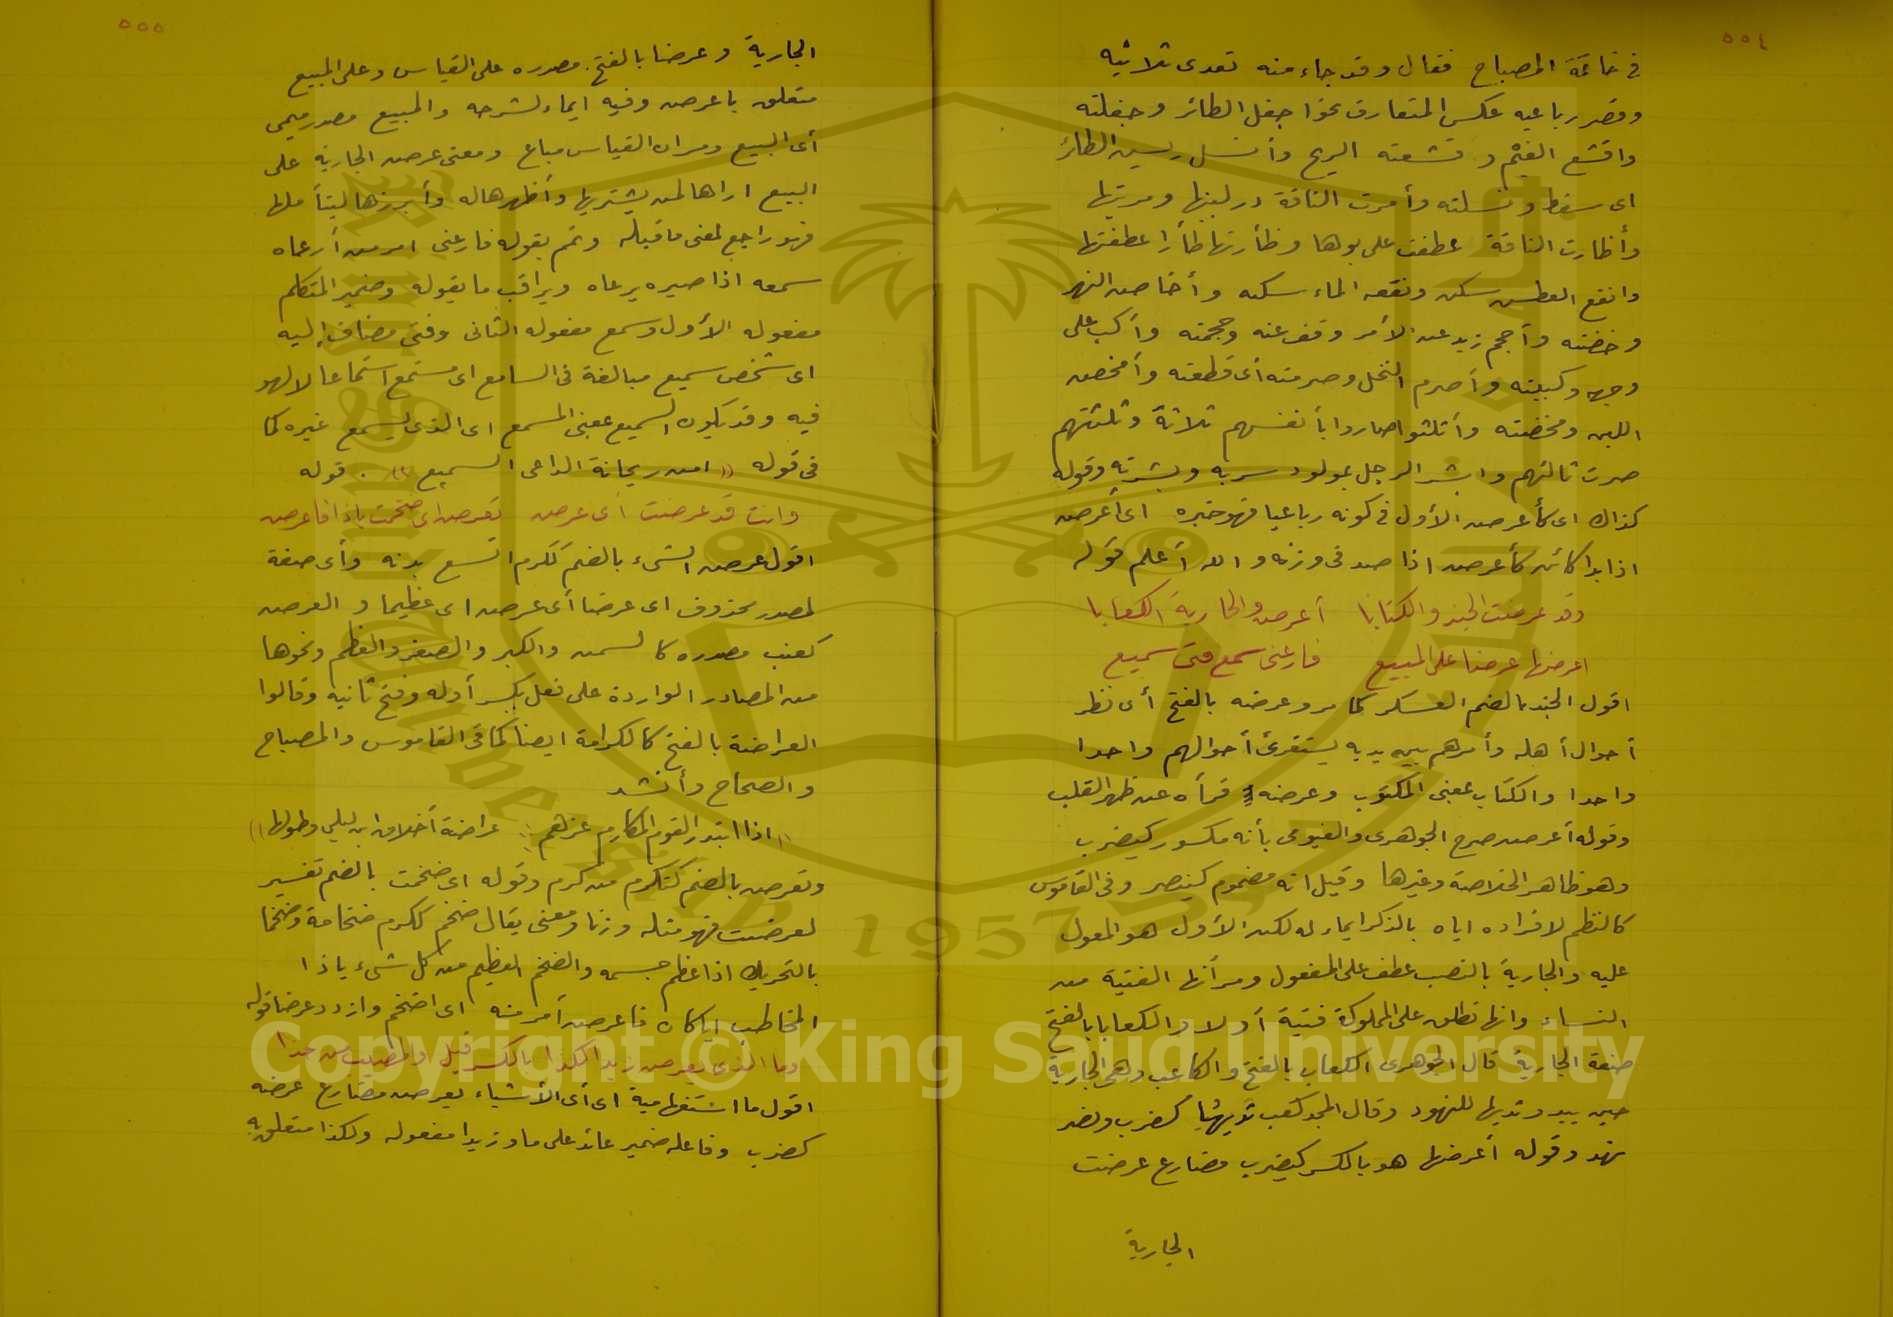 ٥٥٤
في خاتمة المصباح فقال وقد جاء منه تعدى ثلاثيه
وقصر رباعيه عكس المتعارف نحو اجفل الطائر وجفلته
واقشع الغيم وقشعته الريح وأنسل ريش الطائر
اى سقط ونسلته وأمرت الناقة در لبنها ومريتها
وأظارت الناقة عطفت على بوها وظأرتها ظأرا عطفتها
وانقع العطش سكن ونقعه الماء سكنه وأخاض النهر
وخضته وأحجم زيد عن الأمر وقف عنه وحجمته وأكب على
وجهه وكببته وأصرم النخل وصرمته أى قطعته وأمخض
اللبن ومخضته وأثلثوا صاروا بأنفسهم ثلاثة وثلثتهم
صرت ثالثهم وابشر الرجل بمولود سر به وبشرته وقوله
كذاك اى كأعرض الأول في كونه رباعيا فهو خبره اى أعرض
اذا بدا كائن كأعرض اذا صد فى وزنه والله أعلم قوله
وقد عرضت الجند والكتابا أعرض والجارية الكعابا
اعرضها عرضا على المبيع فارعنى سمع فتى سميع
اقول الجند بالضم العسكر كما مر وعرضه بالفتح أى نظر
أحوال أهله وأمرهم بين يديه يستقرئ أحوالهم واحدا
واحدا والكتاب بمعنى المكتوب وعرضه قرأه عن ظهر القلب
وقوله أعرض صرح الجوهرى والفيومى بأنه مكسور كيضرب
وهو ظاهر الخلاصة وغيرها وقيل انه مضموم كينصر وفى القاموس
كالنظم لافراده اياه بالذكر ايماء له لكن الأول هو المعول
عليه والجارية بالنصب عطف على المفعول ومر أنها الفتية من
النساء وانها تطلق على المملوكة فتية أولا والكعابا بالفتح
صفة الجارية قال الجوهرى الكعاب بالفتح والكاعب وهى الجارية
حين يبدو ثديها للنهود وقال المجد كعب ثديها كضرب ونصر
نهد وقوله أعرضها هو بالكسر كيضرب مضارع عرضت
الجارية
٥٥٥
الجارية وعرضا بالفتح مصدره على القياس وعلى المبيع
متعلق باعرض وفيه ايماء لشرحه والمبيع مصدر ميمى
أى البيع ومر ان القياس مباع ومعنى عرض الجارية على
البيع اراها لمن يشتريها وأظهرها له وأبرزها ليتأملها
فهو راجع لمعنى ما قبله وتمم بقوله فارعنى امر من أرعاه
سمعه اذا صيره يرعاه ويراقب ما يقوله وضمير المتكلم
مفعوله الأول وسمع مفعوله الثانى وفتى مضاف إليه
اى شخص سميع مبالغة فى السامع اى مستمع استماعا لا لهو
فيه وقد يكون السميع بمعنى المسمع اى الذى يسمع غيره كما
فى قوله «امن ريحانة الداعى السميع» . قوله
وانت قد عرضت أى عرض تعرض اى ضخمت ياذا فاعرض
اقول عرض الشىء بالضم ككرم اتسع بدنه وأى صفة
لمصدر محذوف اى عرضا أى عرض اى عظيما والعرض
كعنب مصدره كالسمن والكبر والصغر والعظم ونحوها
من المصادر الواردة على فعل بكسر أوله وفتح ثانيه وقالوا
العراضة بالفتح كالكرامة ايضا كما فى القاموس والمصباح
والصحاح وأنشد
«اذا ابتدر القوم المكارم عزهم عراضة أخلاق ابن ليلى وطولها»
وتعرض بالضم كتكرم من كرم وقوله اى ضخمت بالضم تفسير
لعرضت فهو مثله وزنا ومعنى يقال ضخم ككرم ضخامة وضخما
بالتحريك اذا عظم جسمه والضخم العظيم من كل شىء ياذا
المخاطب فاعرض أمر منه اى اضخم وازدد عرضا قوله
وما الذى يعرض زيدا لكذا بالكسر قيل
اقول ما استفهامية اى أى الأشياء يعرض مضارع عرضه
كضرب وفاعله ضمير عائد على ما وزيدا مفعوله ولكذا متعلق به
Copyright © King Saud University
King Saud University
1957